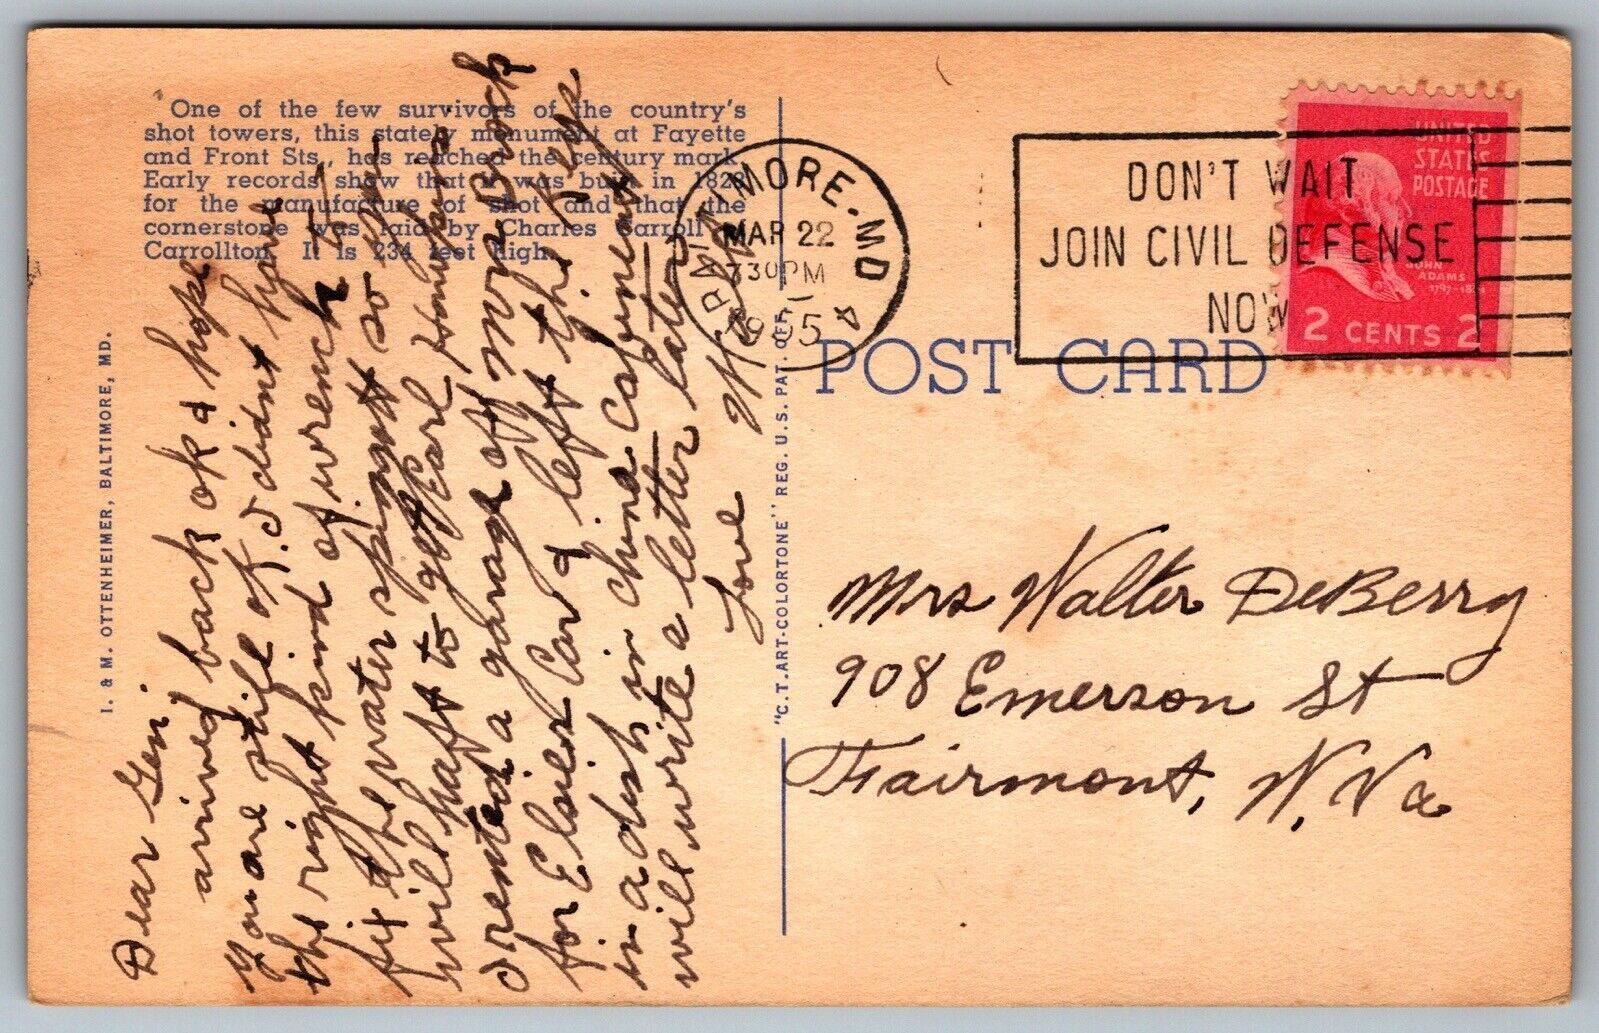 One of the few survivors of the country's
shot towers, this stately monument at Fayette
and Front Sts., has reached the century mark.
Early records show that it was built in 1828
for the manufacture of shot and that the
cornerstone was laid by Charles Carroll of
Carrollton. It is 234 feet high.
I. & M. OTTENHEIMER, BALTIMORE, MD.
Dear Geri
arrived back ok & hope
you are still ok. I didnt have
the right kind of wrench to
fit the water spigott so you
will haft to get Earl
I rented a garage off
for Elsies Car & left the Keys
in a dish in china
will write a letter later
Love
"C.T. ART-COLORTONE" REG. U.S. PAT. OFF.
MORE.MD
MAR 22
730PM
DON'T WAIT
JOIN CIVIL DEFENSE
NOW
UNITED
STATES
POSTAGE
JOHN
ADAMS
2 CENTS 2
POST CARD
Mrs Walter DeBerry
908 Emerson St
Fairmont, W. Va